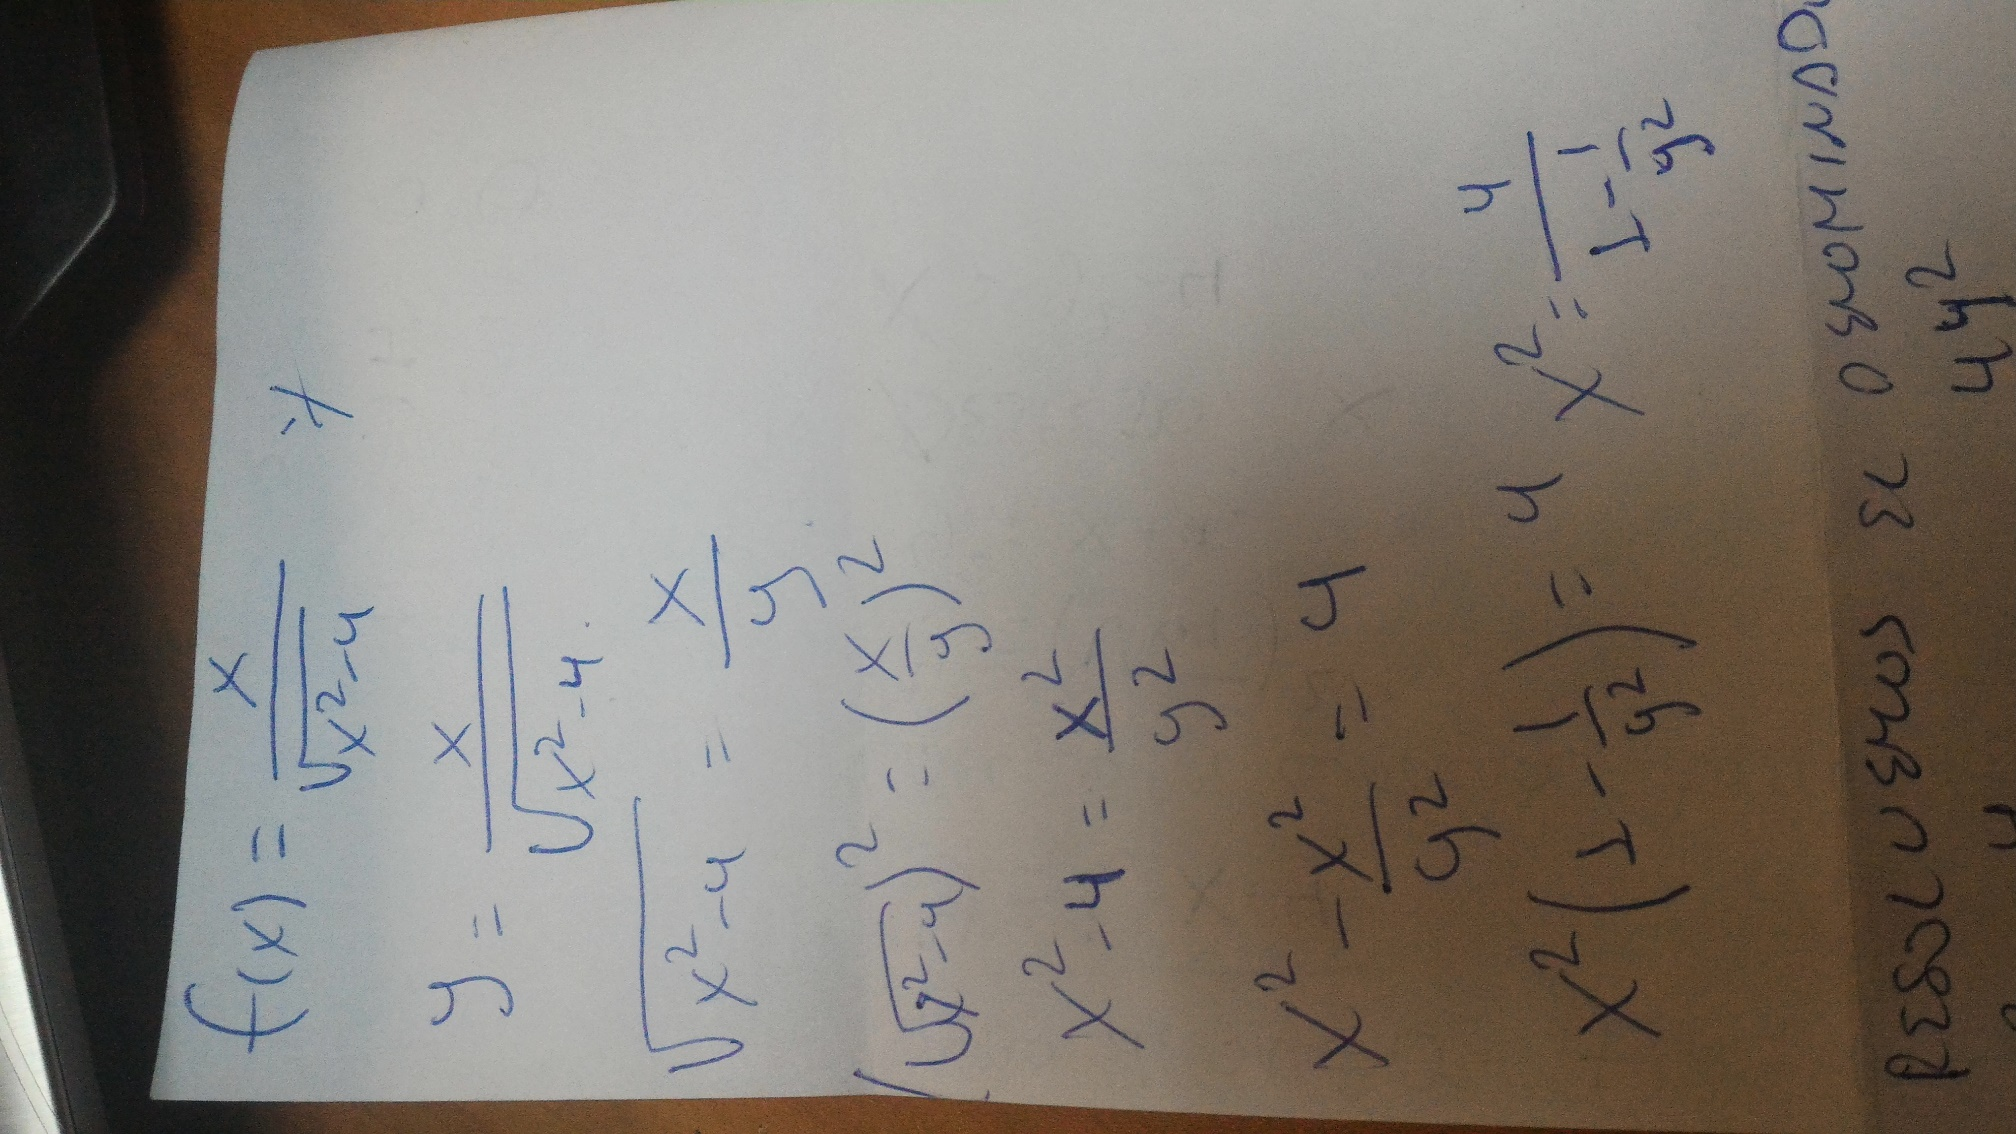 f(x) = x/√(x²-4)
y = x/√(x²-4).
√(x²-4) = x/y
(√(x²-4))² = (x/y)²
x²-4 = x²/y²
x² - x²/y² = 4
x²(1 - 1/y²) = 4 x² = 4/(1 - 1/y²)
RESOLVEMOS EL
4y²